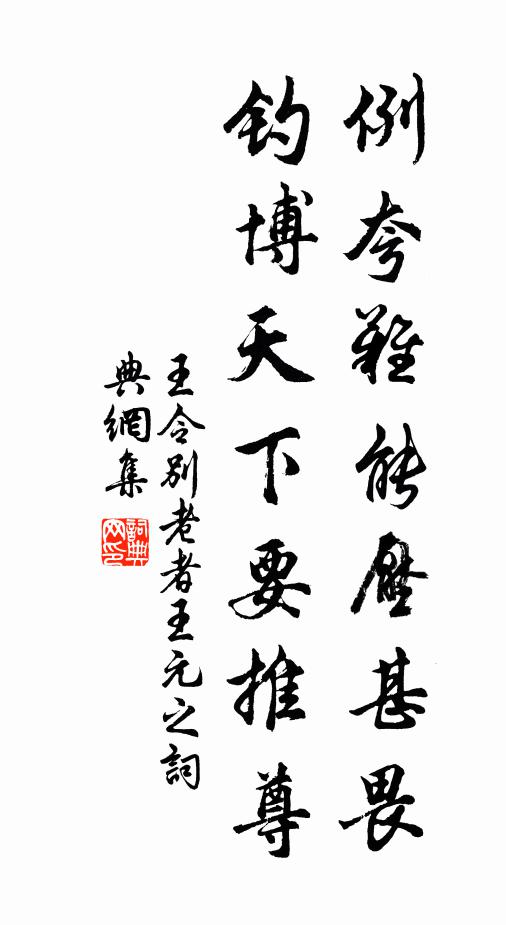 例夸难能壓甚畏
钓博天下要推尊
王令别老者王元之詞
典網集
詞典
网印